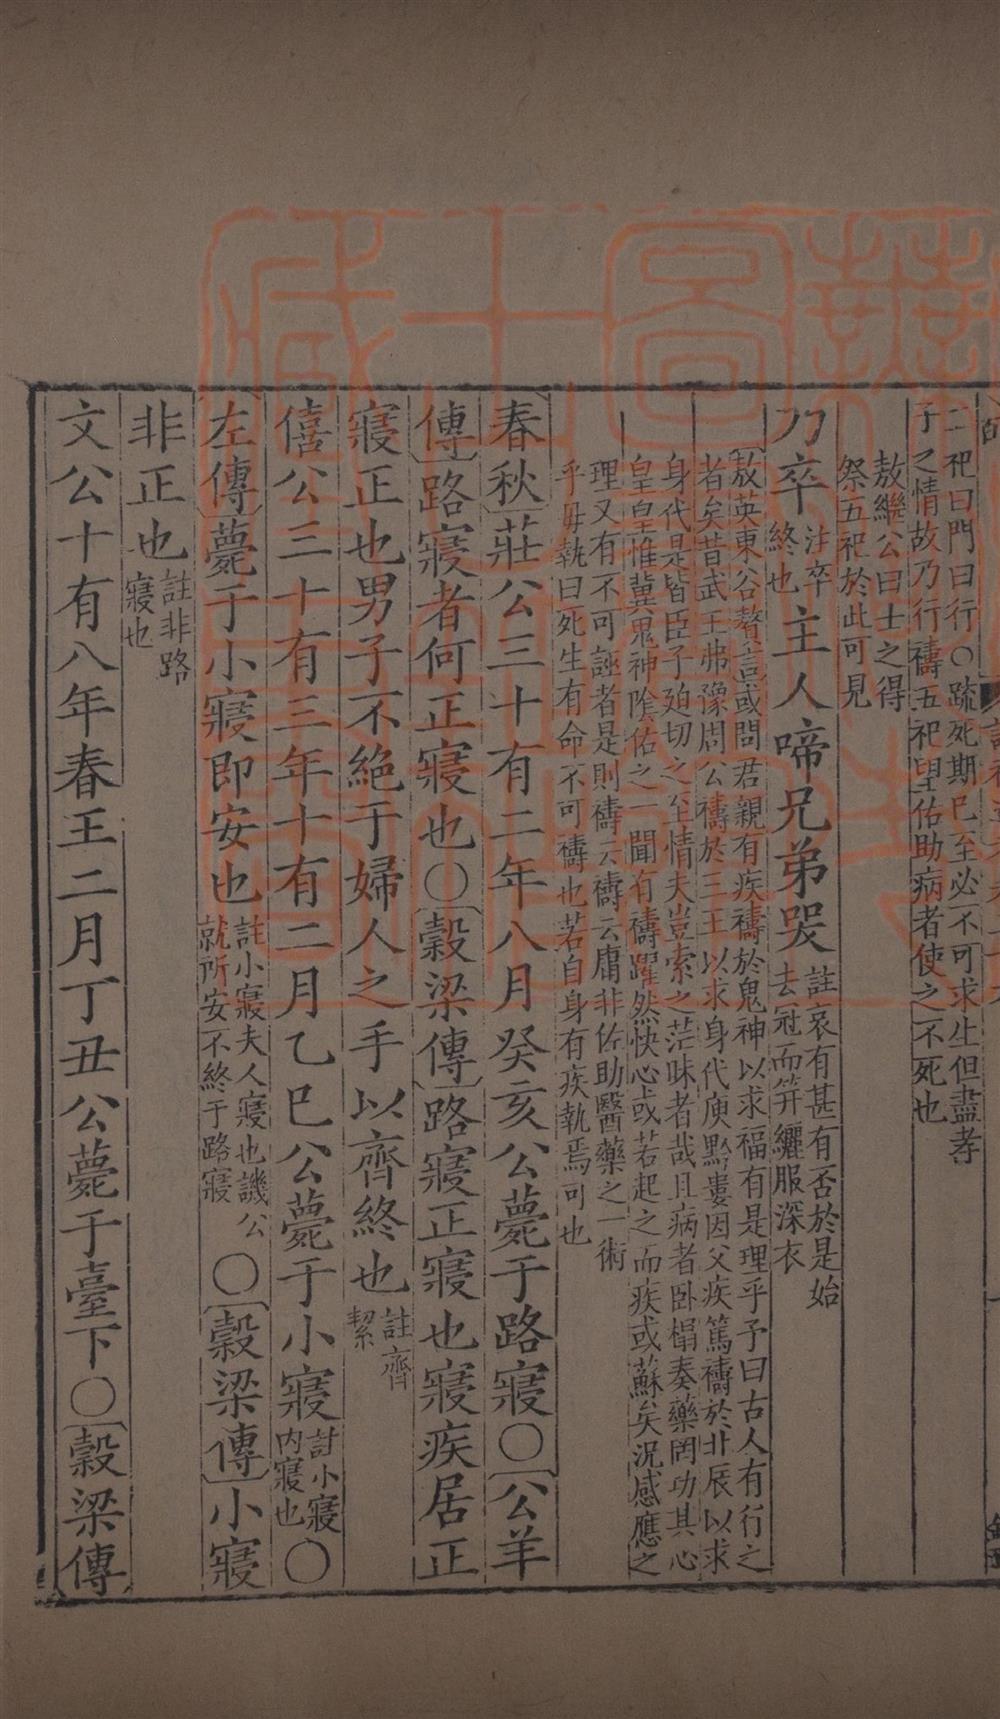 二祀曰門曰行○疏死期已至必不可求生但盡孝
子之情故乃行禱五祀望佑助病者使之不死也
敖繼公曰士之得
祭五祀於此可見
乃卒注卒終也主人啼兄弟哭註哀有甚有否於是始去冠而筓纚服深衣
敖英東谷贅言或問君親有疾禱於鬼神以求福有是理乎予曰古人有行之
者矣昔武王弗豫周公禱於三王以求身代庾黔婁因父疾篤禱於北辰以求
身代是皆臣子廹切之至情夫豈索之茫昧者哉且病者卧榻奏藥罔功其心
皇皇惟冀鬼神隂佑之一聞有禱躍然快心或若起之而疾或蘇矣況感應之
理又有不可誣者是則禱云禱云庸非佐助醫藥之一術
乎毋執曰死生有命不可禱也若自身有疾執焉可也
春秋莊公三十有二年八月癸亥公薨于路寢○公羊
傳路寢者何正寢也○穀梁傳路寢正寢也寢疾居正
寢正也男子不絶于婦人之手以齊終也註齊絜
僖公三十有三年十有二月乙巳公薨于小寢註小寢内寢也○
左傳薨于小寢即安也註小寢夫人寢也譏公就所安不終于路寢○穀梁傳小寢
非正也註非路寢也
文公十有八年春王二月丁丑公薨于臺下○穀梁傳